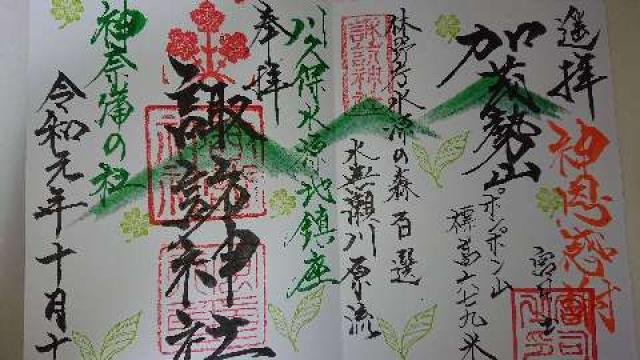 遥拝
神恩感謝
加茂勢山
ポンポン山
標高六七九米
林野庁水源の森百選
水無瀬川原流
諏訪神社
川久保水源地鎮座
奉拝
諏訪神社
神奈備の社
令和元年十月十